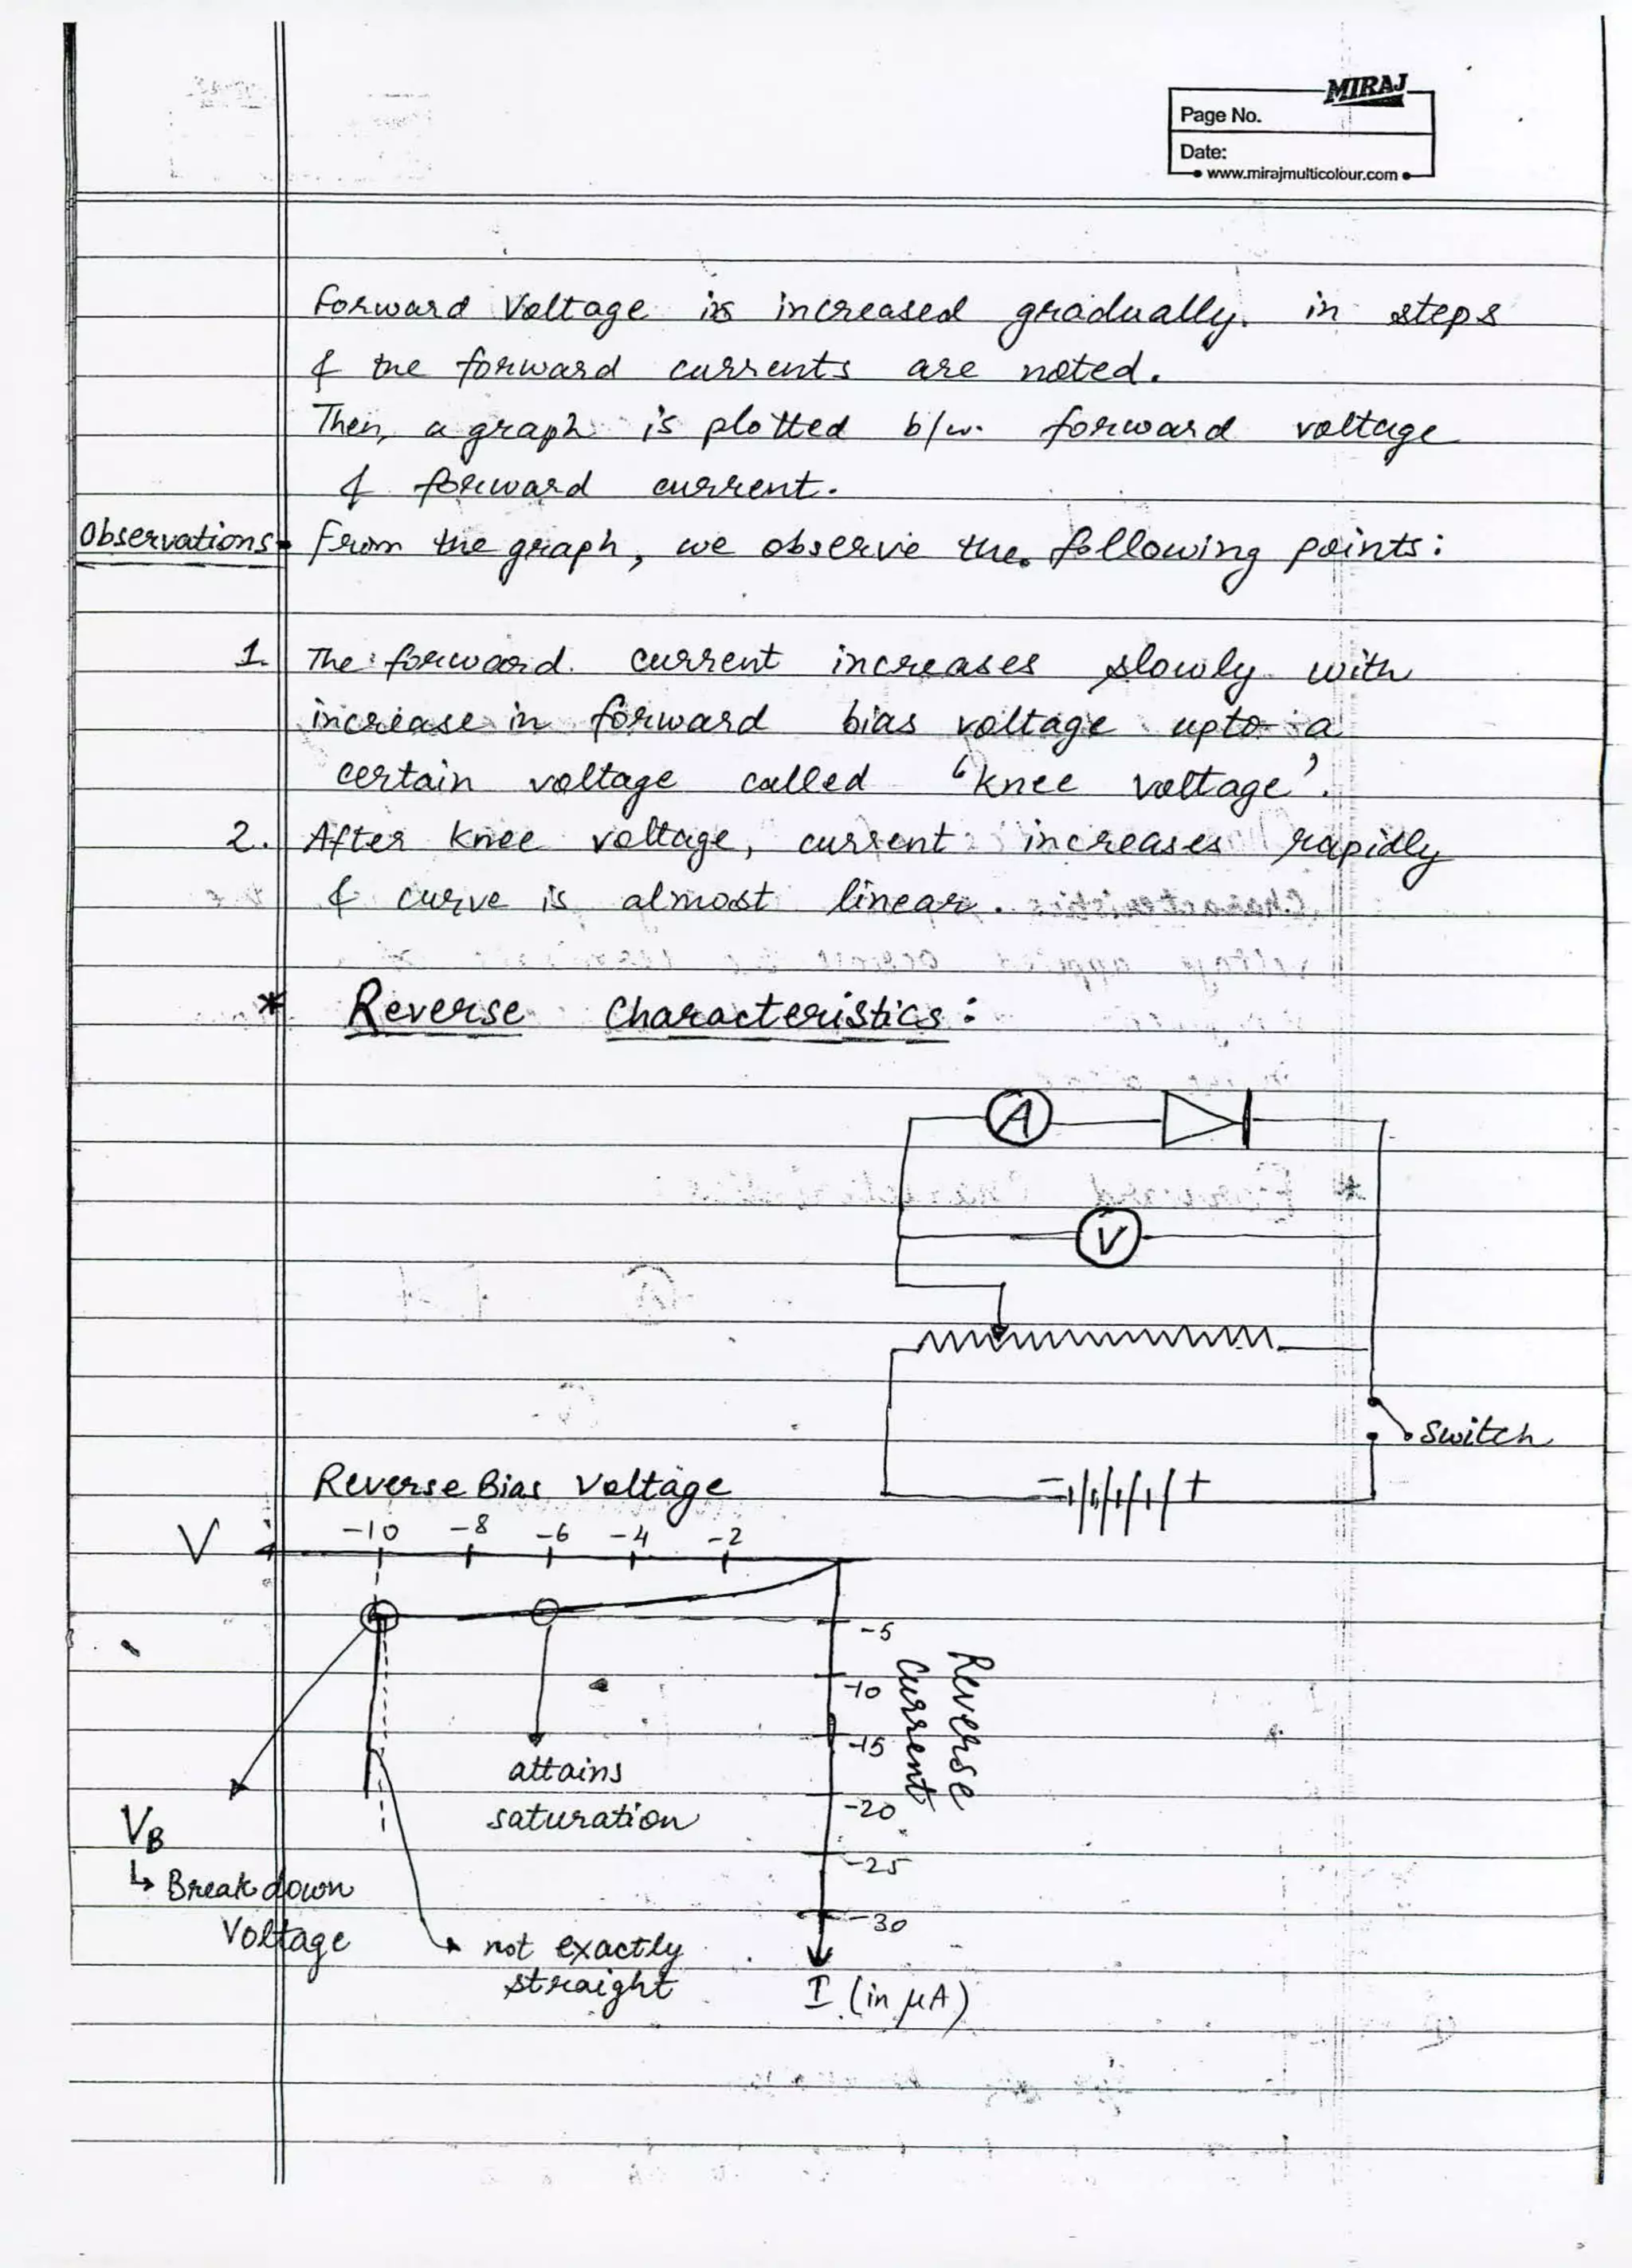 MIRAJ
Page No.
Date:
www.mirajmulticolour.com
Forward Voltage is increased gradually. in steps
& the forward currents are noted.
Then, a graph is plotted b/w. forward voltage
& forward current.
Observations • From the graph, we observe the following points:
1. The forward current increases slowly with
increase in forward bias voltage upto a
certain voltage called 'knee voltage'.
2. After knee voltage, current increases rapidly
& curve is almost linear.
* Reverse Characteristics:
A
V
Switch
- +
Reverse Bias Voltage
V -10 -8 -6 -4 -2
-5
-10
-15
-20
-25
-30
Reverse
Current
attains
saturation
VB
↳ Breakdown
Voltage
not exactly
straight
I (in μA)